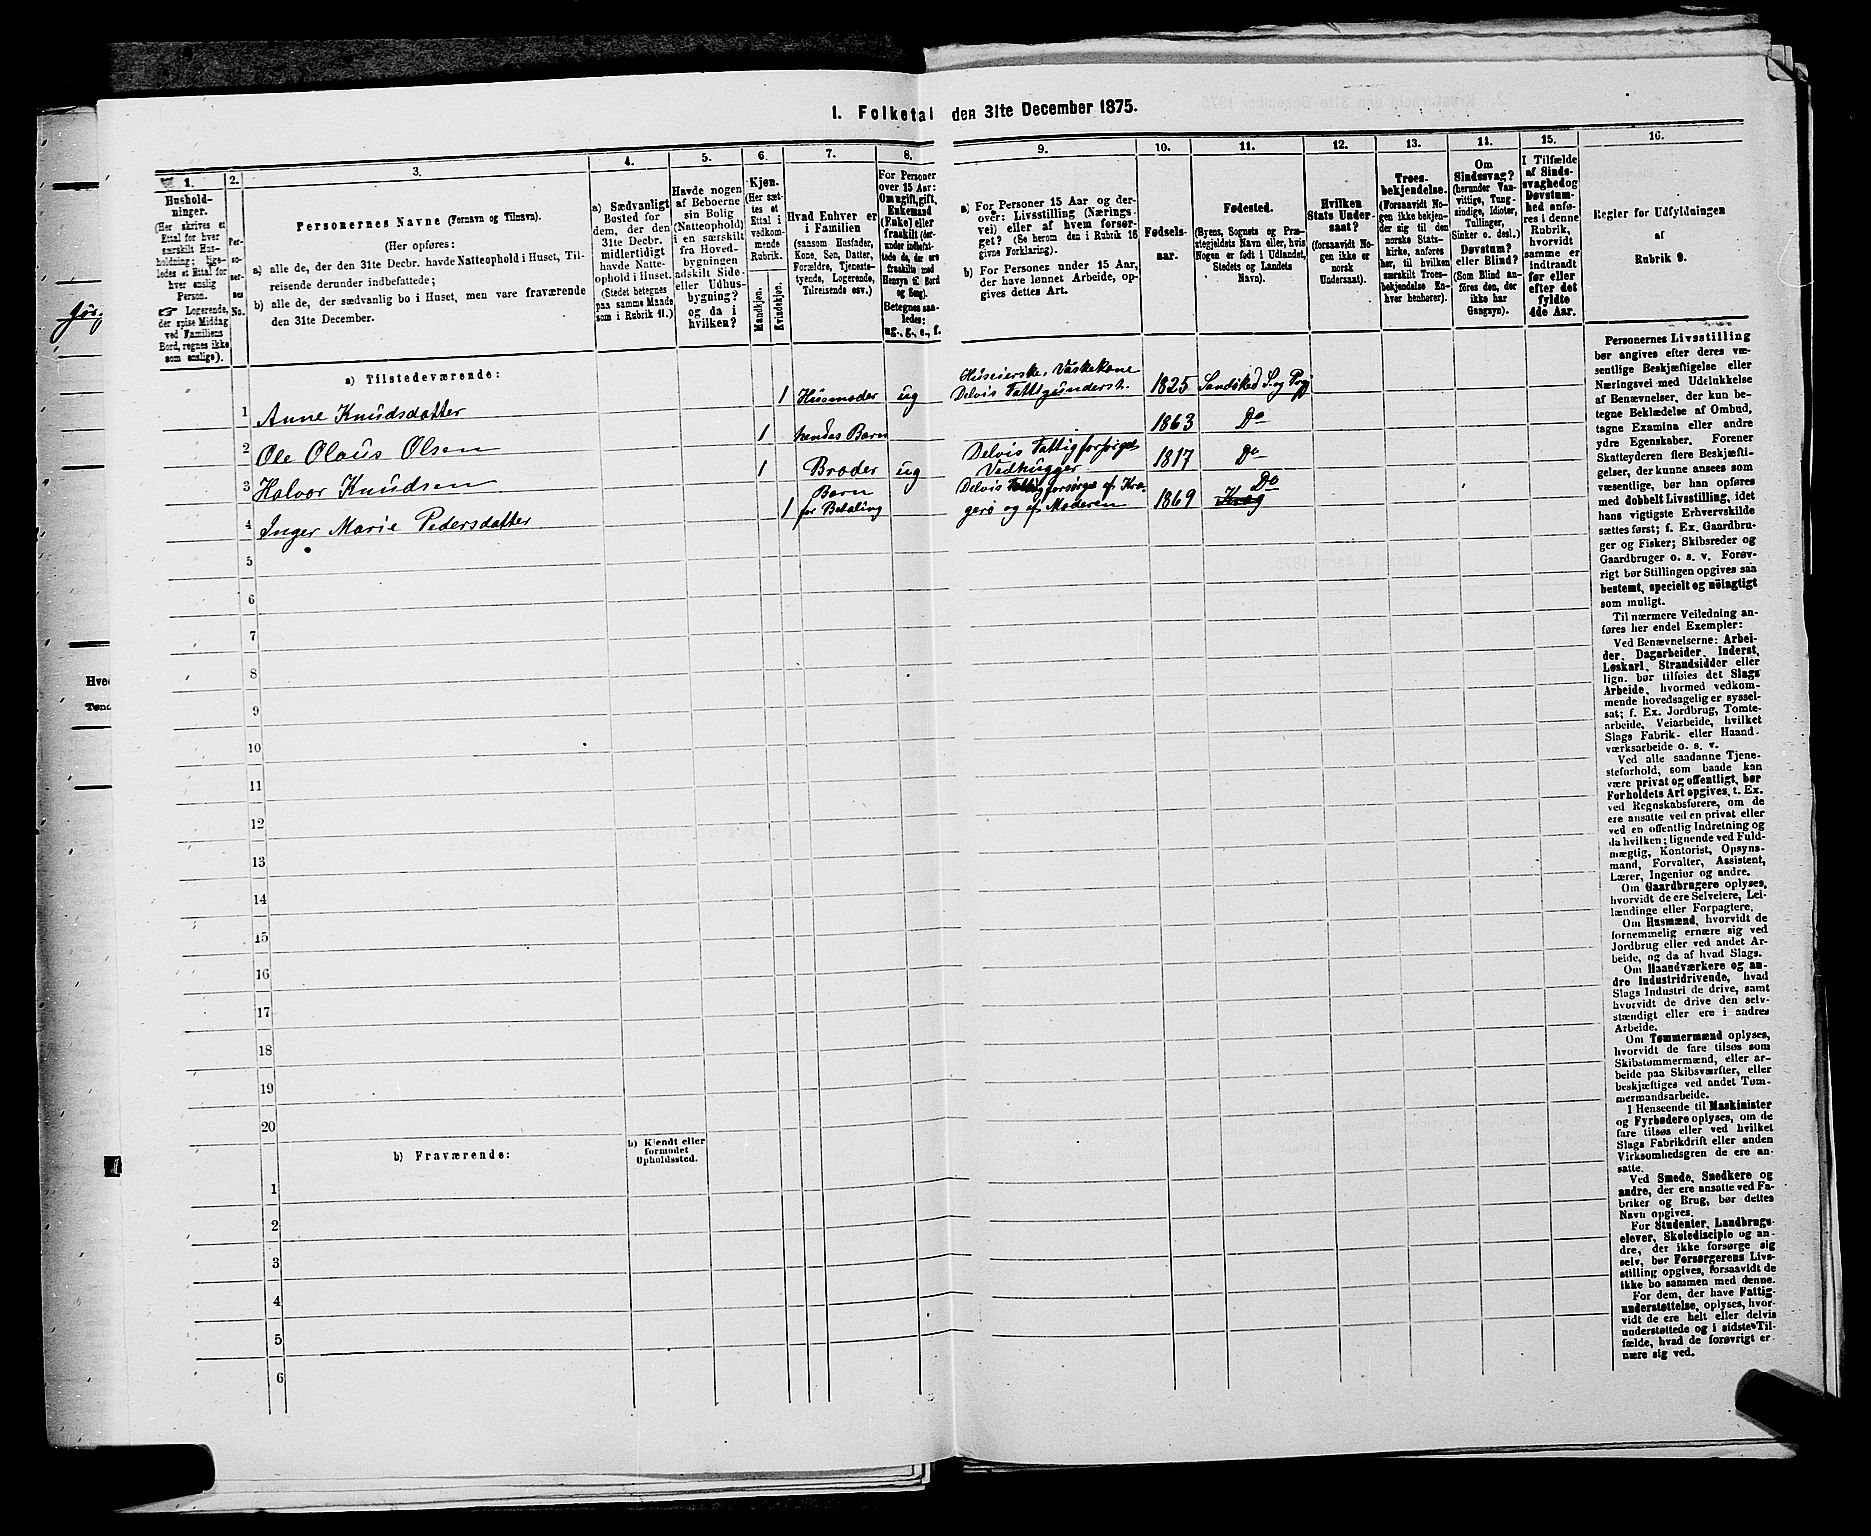 1. Folketal den 31te December 1875.
1.
2.
3.
4.
5.
6.
7.
8.
9.
10.
11.
12.
13.
14.
15.
16.
Hushold-
ninger.
(Her skrives et
Ettal for hver
særskilt Hus-
holdning; lige-
ledes et Ettal for
hver enslig
Person.
☞ Logerende,
der spise Middag
ved Familiens
Bord, regnes ikke
som enslige).
Per-
so-
ner-
nes
No.
Personernes Navne (Fornavn og Tilnavn).
(Her opføres:
a) alle de, der den 31te Decbr. havde Natteophold i Huset, Til-
reisende derunder indbefattede;
b) alle de, der sædvanlig bo i Huset, men vare fraværende
den 31te December.
a) Sædvanligt
Bosted for
dem, der den
31te Decbr.
midlertidigt
havde Natte-
ophold i Huset.
(Stedet betegnes
paa samme Maade
som i Rubrik 11.)
Havde nogen
af Beboerne
sin Bolig
(Natteophold)
i en særskilt
fra Hoved-
bygningen
adskilt Side-
eller Udhus-
bygning?
og da i
hvilken?
Kjøn.
(Her sæt-
tes et
Ettal i
vedkom-
mende
Rubrik.
Mandkjøn.
Kvindekjøn.
Hvad Enhver er
i Familien
(saasom Husfader,
Kone, Søn, Datter,
Forældre, Tjeneste-
tyende, Logerende,
Tilreisende osv.)
For Personer
over 15 Aar:
Om ugift, gift,
Enkemand
(Enke) eller
fraskilt (der-
under indbefat-
tede de, der ere
fraskilte med
Hensyn til Bord
og Seng).
Betegnes saa-
ledes:
ug., g., e., f.
a) For Personer 15 Aar og der-
over: Livsstilling (Nærings-
vei) eller af hvem forsør-
get? (Se herom den i Rubrik 16
givne Forklaring).
b) For Personer under 15 Aar,
der have lønnet Arbeide, op-
gives dettes Art.
Fødsels-
aar.
Fødested.
(Byens, Sognets og Præ-
stegjeldets Navn eller, hvis
Nogen er født i Udlandet,
Stedets og Landets
Navn).
Hvilken
Stats Under-
saat?
(forsaavidt No-
gen ikke er
norsk
Undersaat).
Troes-
bekjendelse.
(Forsaavidt No-
gen ikke bekjen-
der sig til den
norske Stats-
kirke, anføres
her, til hvilken
særskilt Troes-
bekjendelse En-
hver henhører).
Om
Sindssvag?
(herunder Van-
vittige, Tung-
sindige, Idioter,
Tullinger,
Sinker o. desl.)
Døvstum?
eller Blind?
(Som Blind an-
føres den, der
ikke har
Gangsyn).
I Tilfælde
af Sinds-
svaghed og
Døvstum-
hed anfø-
res i denne
Rubrik,
hvorvidt
samme er
indtraadt
før eller
efter det
fyldte
4de Aar.
Regler for Udfyldningen
af
Rubrik 9.
a) Tilstedeværende:
1 Anne Knudsdatter 1 Husmoder ug Huseierske, Vaskekone Delvis Fattigunderst. 1825 Sandøked S. og Prgj
2 Ole Olaus Olsen 1 hendes Barn 1863 Do
3 Halvor Knudsen 1 Broder ug Delvis Fattigforsørget Vedhugger 1817 Do
4 Inger Marie Pedersdatter 1 Barn for Betaling Delvis Fattigforsørget af Kra-
gerø og af Moderen 1869 Krag Do
5
6
7
8
9
10
11
12
13
14
15
16
17
18
19
20
b) Fraværende:
b) Kjendt eller
formodet
Opholdssted.
1
2
3
4
5
6
Personernes Livsstilling
bør angives efter deres væ-
sentlige Beskjæftigelse eller
Næringsvei med Udelukkelse
af Benævnelser, der kun be-
tegne Beklædelse af Ombud,
tagne Examina eller andre
ydre Egenskaber. Forener
Skatteyderen flere Beskjæfti-
gelser, der kunne ansees som
væsentlige, bør han opføres
med dobbelt Livsstilling, idet
hans vigtigste Erhvervskilde
sættes først; f. Ex. Gaardbru-
ger og Fisker; Skibsreder og
Gaardbruger o. s. v. Forøv-
rigt bør Stillingen opgives saa
bestemt, specielt og nöiagtigt
som muligt.
Til nærmere Veiledning an-
føres her endel Exempler:
Ved Benævnelserne: Arbei-
der, Dagarbeider, Inderst,
Løskarl, Strandsidder eller
lign. bør tilføies det Slags
Arbeide, hvormed vedkom-
mende hovedsagelig er syssel-
sat; f. Ex. Jordbrug, Tomte-
arbeide, Veiarbeide, hvilket
Slags Fabrik- eller Haand-
værksarbeide o. s. v.
Ved alle saadanne Tjene-
steforhold, som baade kan
være privat og offentligt, bør
Forholdets Art opgives, t. Ex.
ved Regnskabsførere, om de
ere ansatte ved en privat eller
ved en offentlig Indretning og
da hvilken; lignende ved Fuld-
mægtig, Kontorist, Opsyns-
mand, Forvalter, Assistent,
Lærer, Ingeniør og andre.
Om Gaardbrugere oplyses,
hvorvidt de ere Selveiere, Lei-
lændinge eller Forpagtere.
Om Husmænd, hvorvidt de
fornemmelig ernære sig ved
Jordbrug eller ved andet Ar-
beide, og da af hvad Slags.
Om Haandværkere og an-
dre Industridrivende, hvad
Slags Industri de drive, samt
hvorvidt de drive den selv-
stændigt eller ere i andres
Arbeide.
Om Tømmermænd oplyses,
hvorvidt de fare tilsøs som
Skibstømmermænd, eller ar-
beide paa Skibsværfter, eller
beskjæftiges ved andet Tøm-
mermandsarbeide.
I Henseende til Maskinister
og Fyrbødere oplyses, om de
fare tilsøs eller ved hvilket
Slags Fabrikdrift eller anden
Virksomhedsgren de ere an-
satte.
Ved Smede, Snedkere og
andre, der ere ansatte ved Fa-
briker og Brug, bør dettes
Navn opgives.
For Studenter, Landbrugs-
elever, Skoledisciple og an-
dre, der ikke forsørge sig
selv, bør Forsørgerens Livs-
stilling opgives, forsaavidt de
ikke bo sammen med denne.
For dem, der have Fattig-
understøttelse, oplyses, hvor-
vidt de ere helt eller delvis
understøttede og i sidste Til-
fælde, hvad de forøvrigt er-
nære sig ved.